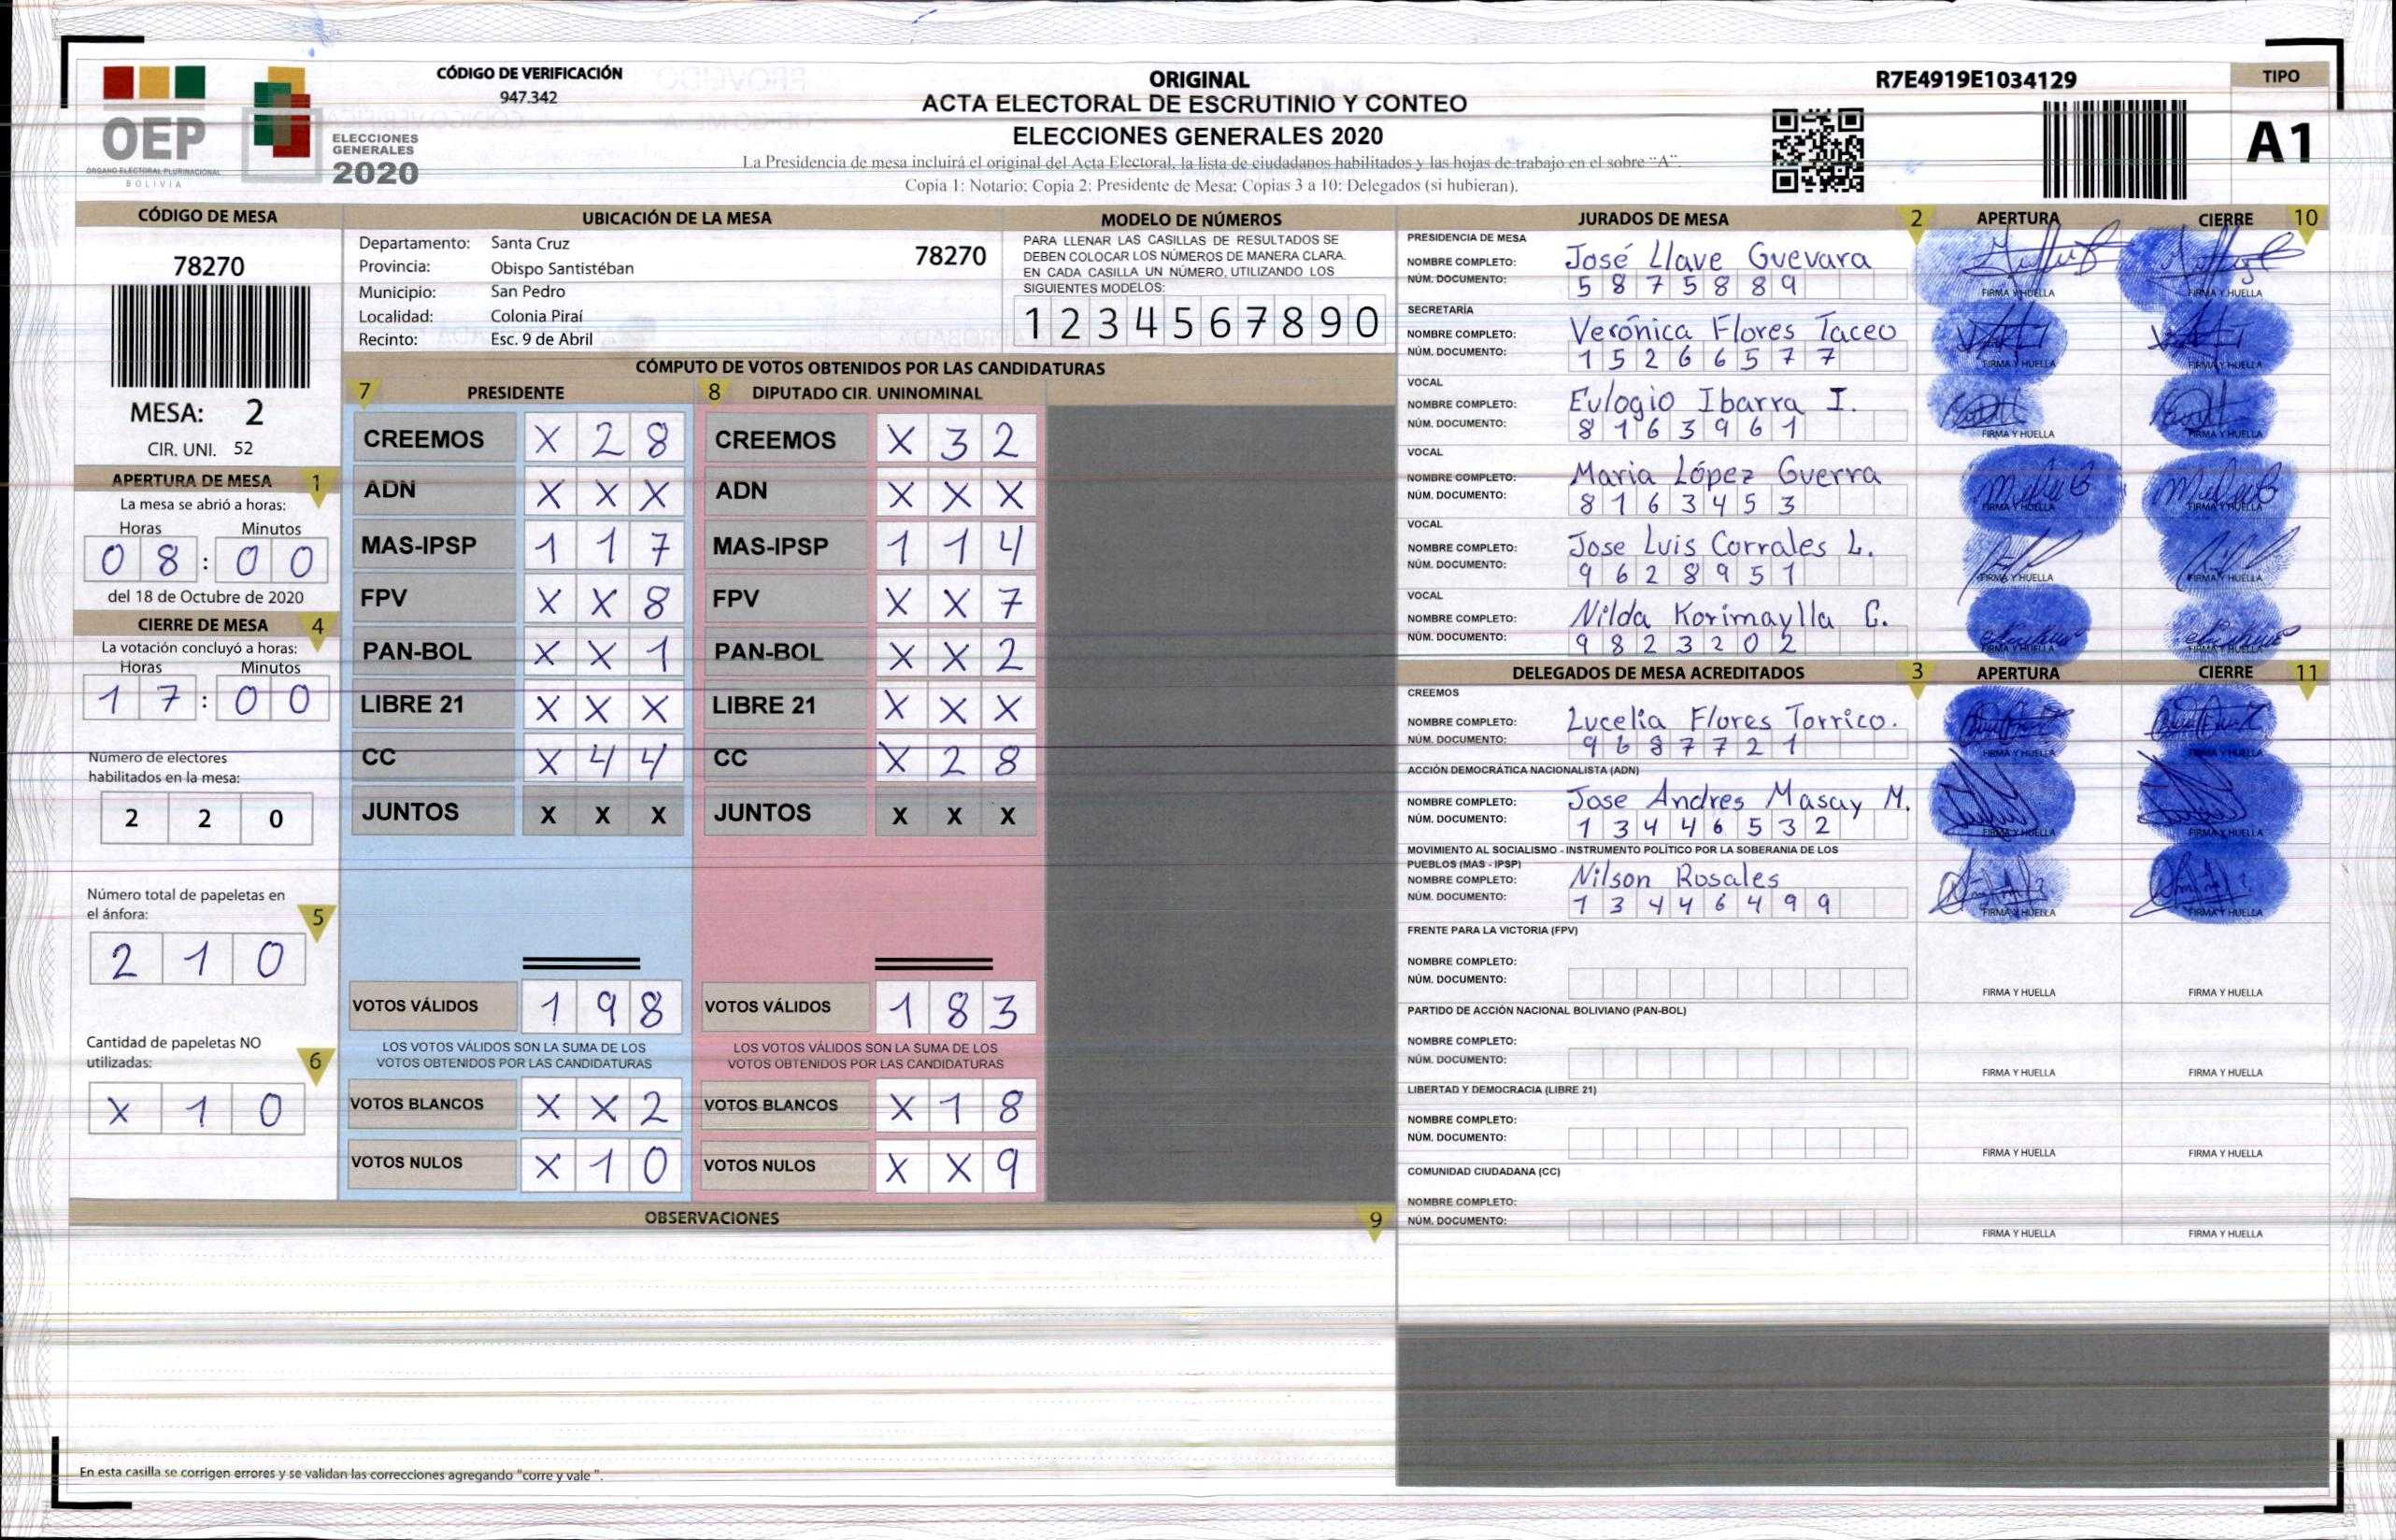 OEP
ÓRGANO ELECTORAL PLURINACIONAL
BOLIVIA
ELECCIONES
GENERALES
2020
CÓDIGO DE VERIFICACIÓN
947.342
ORIGINAL
ACTA ELECTORAL DE ESCRUTINIO Y CONTEO
ELECCIONES GENERALES 2020
La Presidencia de mesa incluirá el original del Acta Electoral, la lista de ciudadanos habilitados y las hojas de trabajo en el sobre "A".
Copia 1: Notario; Copia 2: Presidente de Mesa; Copias 3 a 10: Delegados (si hubieran).
R7E4919E1034129
TIPO
A1
CÓDIGO DE MESA
78270
MESA: 2
CIR. UNI. 52
APERTURA DE MESA 1
La mesa se abrió a horas:
Horas Minutos
0 8 : 0 0
del 18 de Octubre de 2020
CIERRE DE MESA 4
La votación concluyó a horas:
Horas Minutos
1 7 : 0 0
Número de electores
habilitados en la mesa:
2 2 0
Número total de papeletas en
el ánfora: 5
2 1 0
Cantidad de papeletas NO
utilizadas: 6
X 1 0
UBICACIÓN DE LA MESA
Departamento: Santa Cruz 78270
Provincia: Obispo Santistéban
Municipio: San Pedro
Localidad: Colonia Piraí
Recinto: Esc. 9 de Abril
MODELO DE NÚMEROS
PARA LLENAR LAS CASILLAS DE RESULTADOS SE
DEBEN COLOCAR LOS NÚMEROS DE MANERA CLARA.
EN CADA CASILLA UN NÚMERO, UTILIZANDO LOS
SIGUIENTES MODELOS:
1 2 3 4 5 6 7 8 9 0
CÓMPUTO DE VOTOS OBTENIDOS POR LAS CANDIDATURAS
7 PRESIDENTE 8 DIPUTADO CIR. UNINOMINAL
CREEMOS X 2 8 CREEMOS X 3 2
ADN X X X ADN X X X
MAS-IPSP 1 1 7 MAS-IPSP 1 1 4
FPV X X 8 FPV X X 7
PAN-BOL X X 1 PAN-BOL X X 2
LIBRE 21 X X X LIBRE 21 X X X
CC X 4 4 CC X 2 8
JUNTOS X X X JUNTOS X X X
VOTOS VÁLIDOS 1 9 8 VOTOS VÁLIDOS 1 8 3
LOS VOTOS VÁLIDOS SON LA SUMA DE LOS LOS VOTOS VÁLIDOS SON LA SUMA DE LOS
VOTOS OBTENIDOS POR LAS CANDIDATURAS VOTOS OBTENIDOS POR LAS CANDIDATURAS
VOTOS BLANCOS X X 2 VOTOS BLANCOS X 1 8
VOTOS NULOS X 1 0 VOTOS NULOS X X 9
OBSERVACIONES 9
En esta casilla se corrigen errores y se validan las correcciones agregando "corre y vale ".
JURADOS DE MESA 2 APERTURA CIERRE 10
PRESIDENCIA DE MESA
NOMBRE COMPLETO: José Llave Guevara
NÚM. DOCUMENTO: 5 8 7 5 8 8 9
FIRMA Y HUELLA FIRMA Y HUELLA
SECRETARÍA
NOMBRE COMPLETO: Verónica Flores Taceo
NÚM. DOCUMENTO: 1 5 2 6 6 5 7 7
FIRMA Y HUELLA FIRMA Y HUELLA
VOCAL
NOMBRE COMPLETO: Eulogio Ibarra I.
NÚM. DOCUMENTO: 8 1 6 3 9 6 1
FIRMA Y HUELLA FIRMA Y HUELLA
VOCAL
NOMBRE COMPLETO: Maria López Guerra
NÚM. DOCUMENTO: 8 1 6 3 4 5 3
FIRMA Y HUELLA FIRMA Y HUELLA
VOCAL
NOMBRE COMPLETO: Jose Luis Corrales L.
NÚM. DOCUMENTO: 9 6 2 8 9 5 1
FIRMA Y HUELLA FIRMA Y HUELLA
VOCAL
NOMBRE COMPLETO: Nilda Korimaylla C.
NÚM. DOCUMENTO: 9 8 2 3 2 0 2
FIRMA Y HUELLA FIRMA Y HUELLA
DELEGADOS DE MESA ACREDITADOS 3 APERTURA CIERRE 11
CREEMOS
NOMBRE COMPLETO: Lucelia Flores Torrico.
NÚM. DOCUMENTO: 9 6 8 7 7 2 1
FIRMA Y HUELLA FIRMA Y HUELLA
ACCIÓN DEMOCRÁTICA NACIONALISTA (ADN)
NOMBRE COMPLETO: Jose Andres Masay M.
NÚM. DOCUMENTO: 1 3 4 4 6 5 3 2
FIRMA Y HUELLA FIRMA Y HUELLA
MOVIMIENTO AL SOCIALISMO - INSTRUMENTO POLÍTICO POR LA SOBERANIA DE LOS
PUEBLOS (MAS - IPSP)
NOMBRE COMPLETO: Nilson Rosales
NÚM. DOCUMENTO: 1 3 4 4 6 4 9 9
FIRMA Y HUELLA FIRMA Y HUELLA
FRENTE PARA LA VICTORIA (FPV)
NOMBRE COMPLETO:
NÚM. DOCUMENTO:
FIRMA Y HUELLA FIRMA Y HUELLA
PARTIDO DE ACCIÓN NACIONAL BOLIVIANO (PAN-BOL)
NOMBRE COMPLETO:
NÚM. DOCUMENTO:
FIRMA Y HUELLA FIRMA Y HUELLA
LIBERTAD Y DEMOCRACIA (LIBRE 21)
NOMBRE COMPLETO:
NÚM. DOCUMENTO:
FIRMA Y HUELLA FIRMA Y HUELLA
COMUNIDAD CIUDADANA (CC)
NOMBRE COMPLETO:
NÚM. DOCUMENTO:
FIRMA Y HUELLA FIRMA Y HUELLA